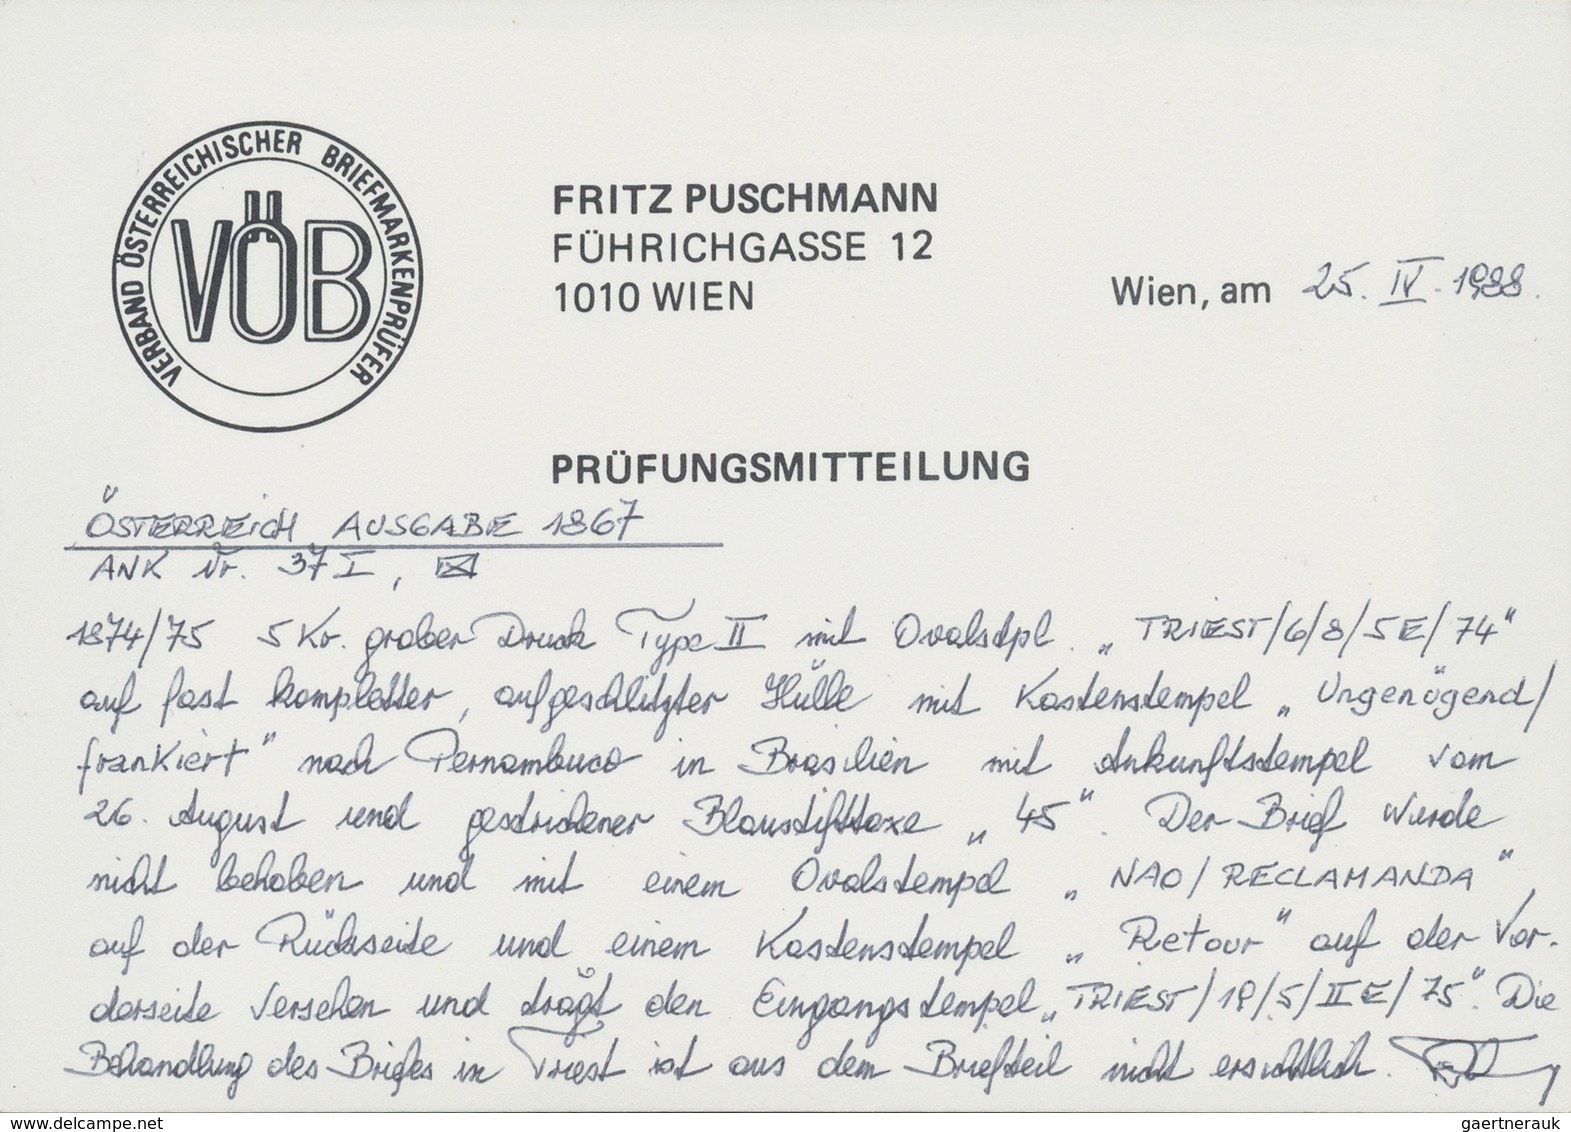 VERBAND ÖSTERREICHISCHER BRIEFMARKENPRÜFER
VÖB
FRITZ PUSCHMANN
FÜHRICHGASSE 12
1010 WIEN
Wien, am 25. IV. 1988.
PRÜFUNGSMITTEILUNG
ÖSTERREICH, AUSGABE 1867
ANK Nr. 37 I, ✉
1874/75 5 Kr. grober Druck Type II mit Ovalstpl. „TRIEST/6/8/5E/74"
auf fast kompletter, aufgeschlitzter Hülle mit Kastenstempel „Ungenügend/
frankiert" nach Pernambuco in Brasilien mit Ankunftstempel vom
26. August und gestrichener Blaustifttaxe „45". Der Brief wurde
nicht behoben und mit einem Ovalstempel „NAO/RECLAMANDA",
auf der Rückseite und einem Kastenstempel „Retour" auf der Vor-
derseite versehen und trägt den Eingangstempel „TRIEST/19/5/IIE/75". Die
Behandlung des Briefes in Triest ist aus dem Briefteil nicht ersichtlich.
delcampe.net
gaertnerauk